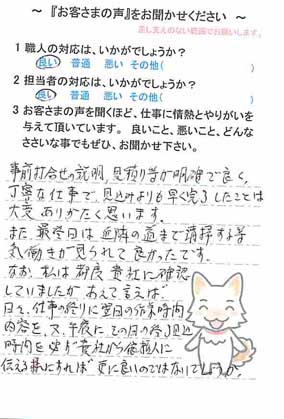 ～ 『お客さまの声』をお聞かせください ～
差し支えのない範囲でお願いします。
1 職人の対応は、いかがでしょうか？
良い 普通 悪い その他( )
2 担当者の対応は、いかがでしょうか？
良い 普通 悪い その他( )
3 お客さまの声を聞くほど、仕事に情熱とやりがいを
与えて頂いています。 良いこと、悪いこと、どんな
ささいな事でもぜひ、お聞かせ下さい。
事前打合せの説明、見積り等が明確で良く、
丁寧な仕事で、見込みよりも早く完了したことは
大変ありがたく思います。
また、最終日は近隣の道まで清掃する等
気働きが見られて良かったです。
なお、私は都度貴社に確認
していましたが、あえて言えば、
日々、仕事の終りに翌日の作業時間
内容を、又、午後に、その日の終了見込
時間を 貴社から依頼人に
伝える様にすれば更に良いのではないでしょうか